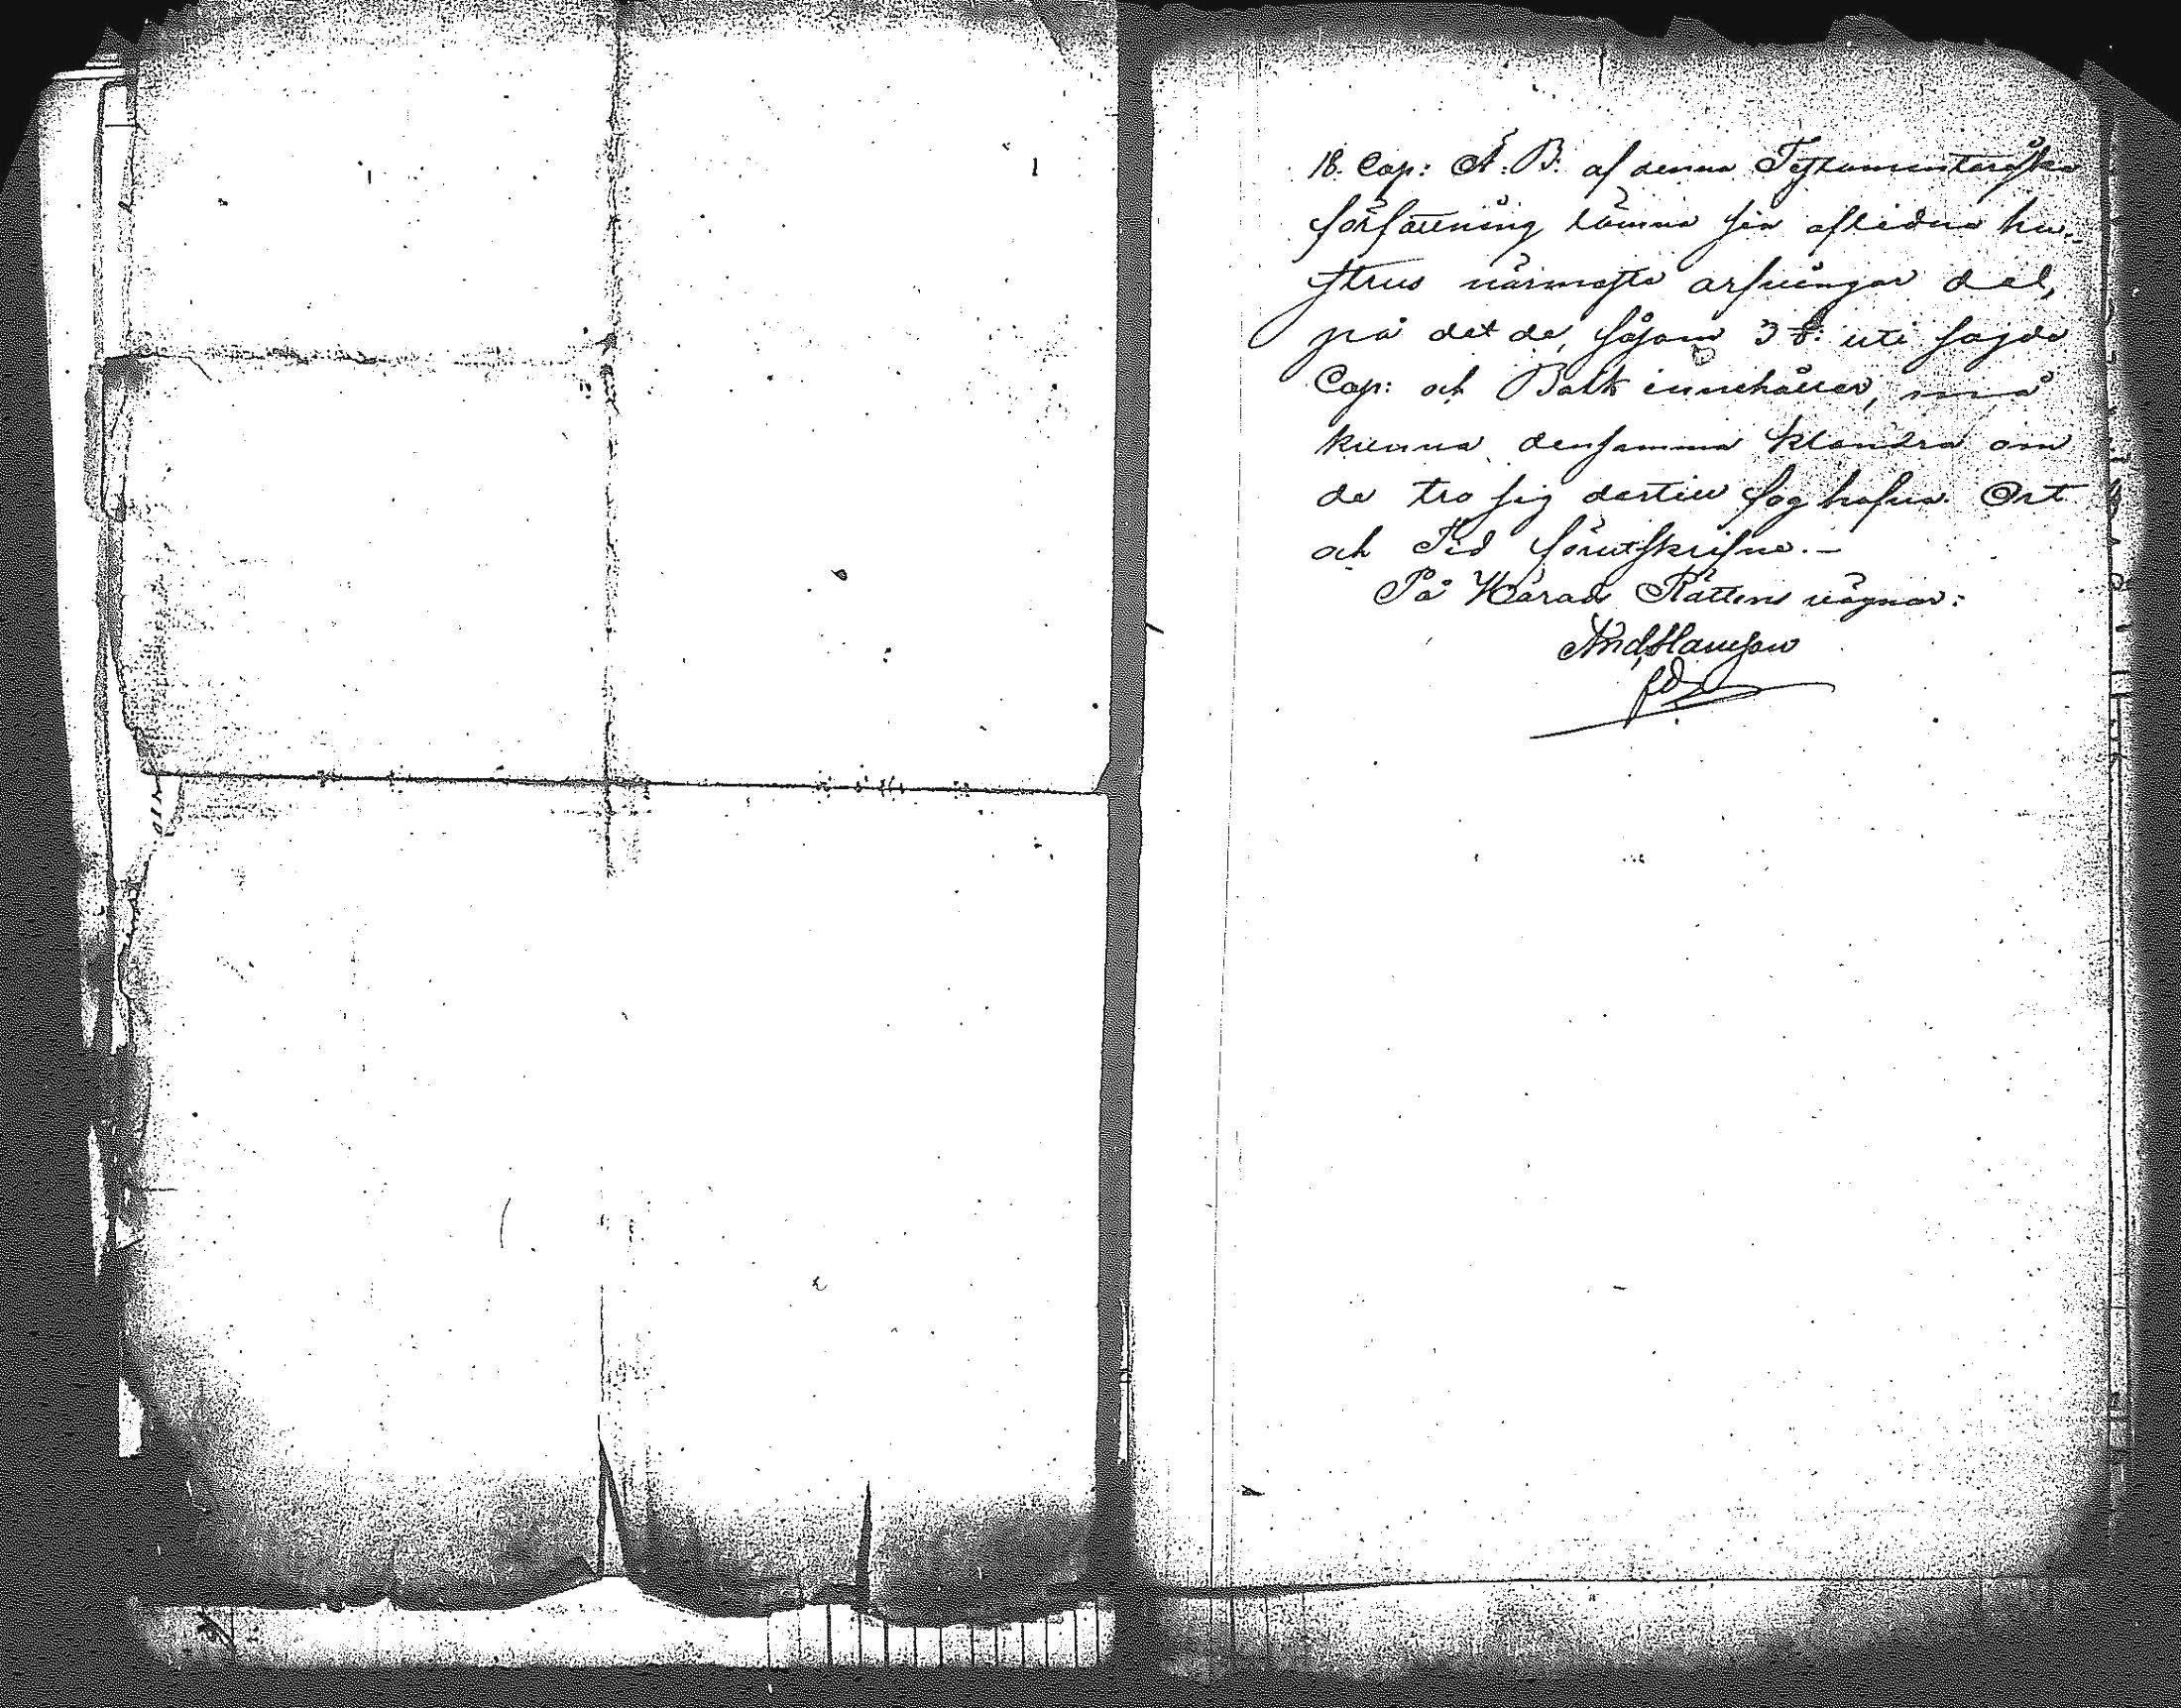 18. Cap: Ä. B. af denna Testamentariska
författning lämna sin aflidna hu-
strus närmaste arfvingar del,
på det de, såsom 3 §: uti sagde
Cap: och Balk innehåller, må
kunna densamma klandra om
de tro sig dertill fog hafva. Ort
och Tid förutskrifne. –
På Härads Rättens vägnar: